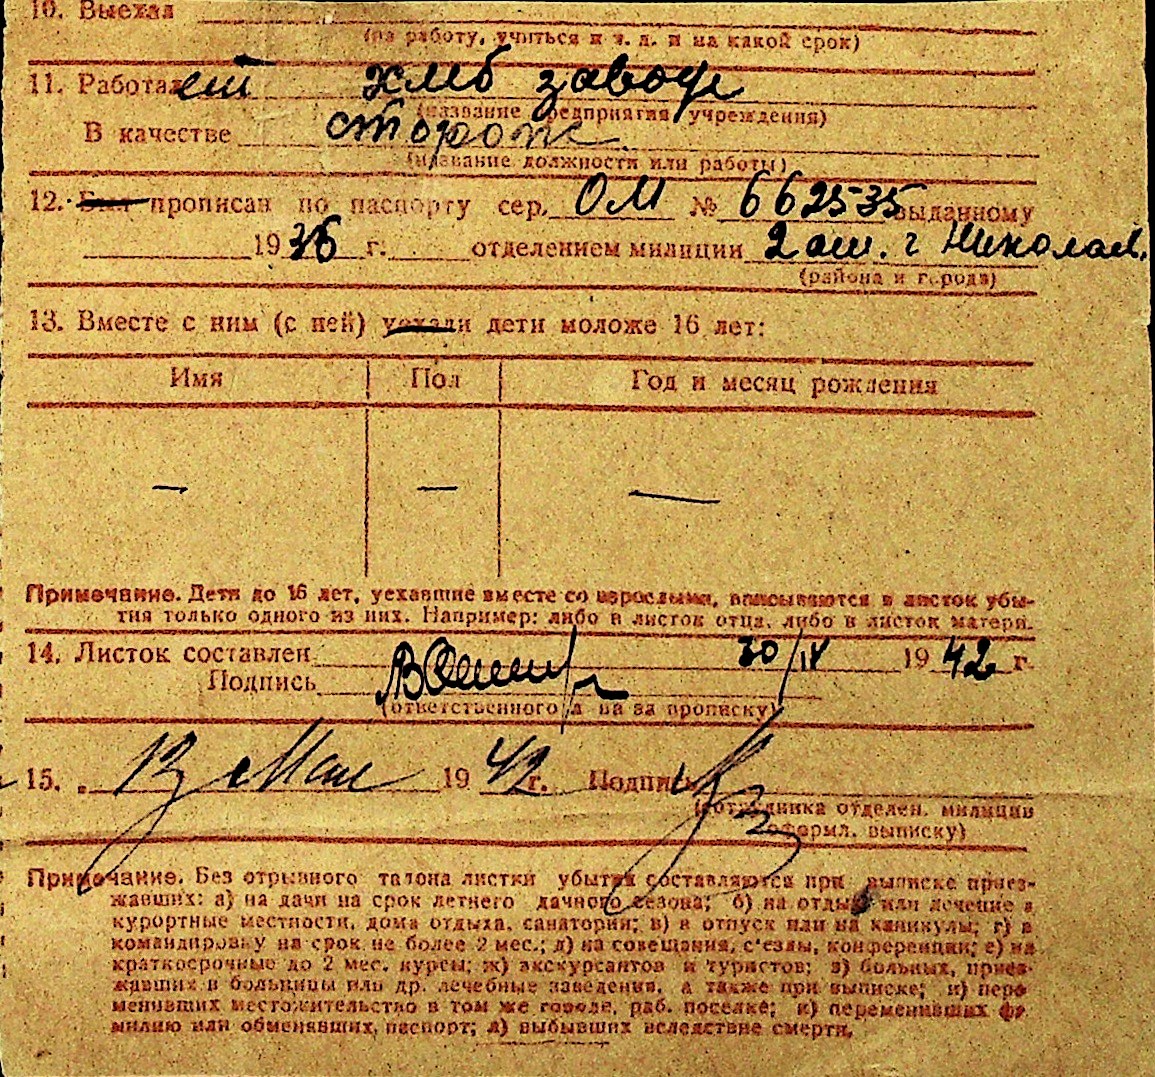 10. Выехал
(на работу, учиться и т. д. и на какой срок)
11. Работает хлеб завод
(название предприятия учреждения)
В качестве сторож
(название должности или работы)
12. Был прописан по паспорту сер. ОМ № 662535 выданному
1936 г. отделением милиции 2 от. г Николаев.
(района и города)
13. Вместе с ним (с ней) уехали дети моложе 16 лет:
Имя Пол Год и месяц рождения
— — —
Примечание. Дети до 16 лет, уехавшие вместе со взрослыми, вписываются в листок убы-
тия только одного из них. Например: либо в листок отца, либо в листок матери.
14. Листок составлен 30/IV 1942 г.
Подпись
(ответственного л на за прописку)
15. 13 Мая 1942 г. Подпись
(сотрудника отделен. милиции
оформл. выписку)
Примечание. Без отрывного талона листки убытия составляются при выписке приез-
жавших: а) на дачи на срок летнего дачного сезона; б) на отдых или лечение в
курортные местности, дома отдыха, санатории; в) в отпуск или на каникулы; г) в
командировку на срок не более 2 мес.; д) на совещания, с'езды, конференции; е) на
краткосрочные до 2 мес. курсы; ж) экскурсантов и туристов; з) больных, приез-
жавших в больницы или др. лечебные заведения, а также при выписке; и) пере
менивших местожительство в том же городе, раб. поселке; к) переменивших фа
милию или обменявших паспорт; л) выбывших вследствие смерти.